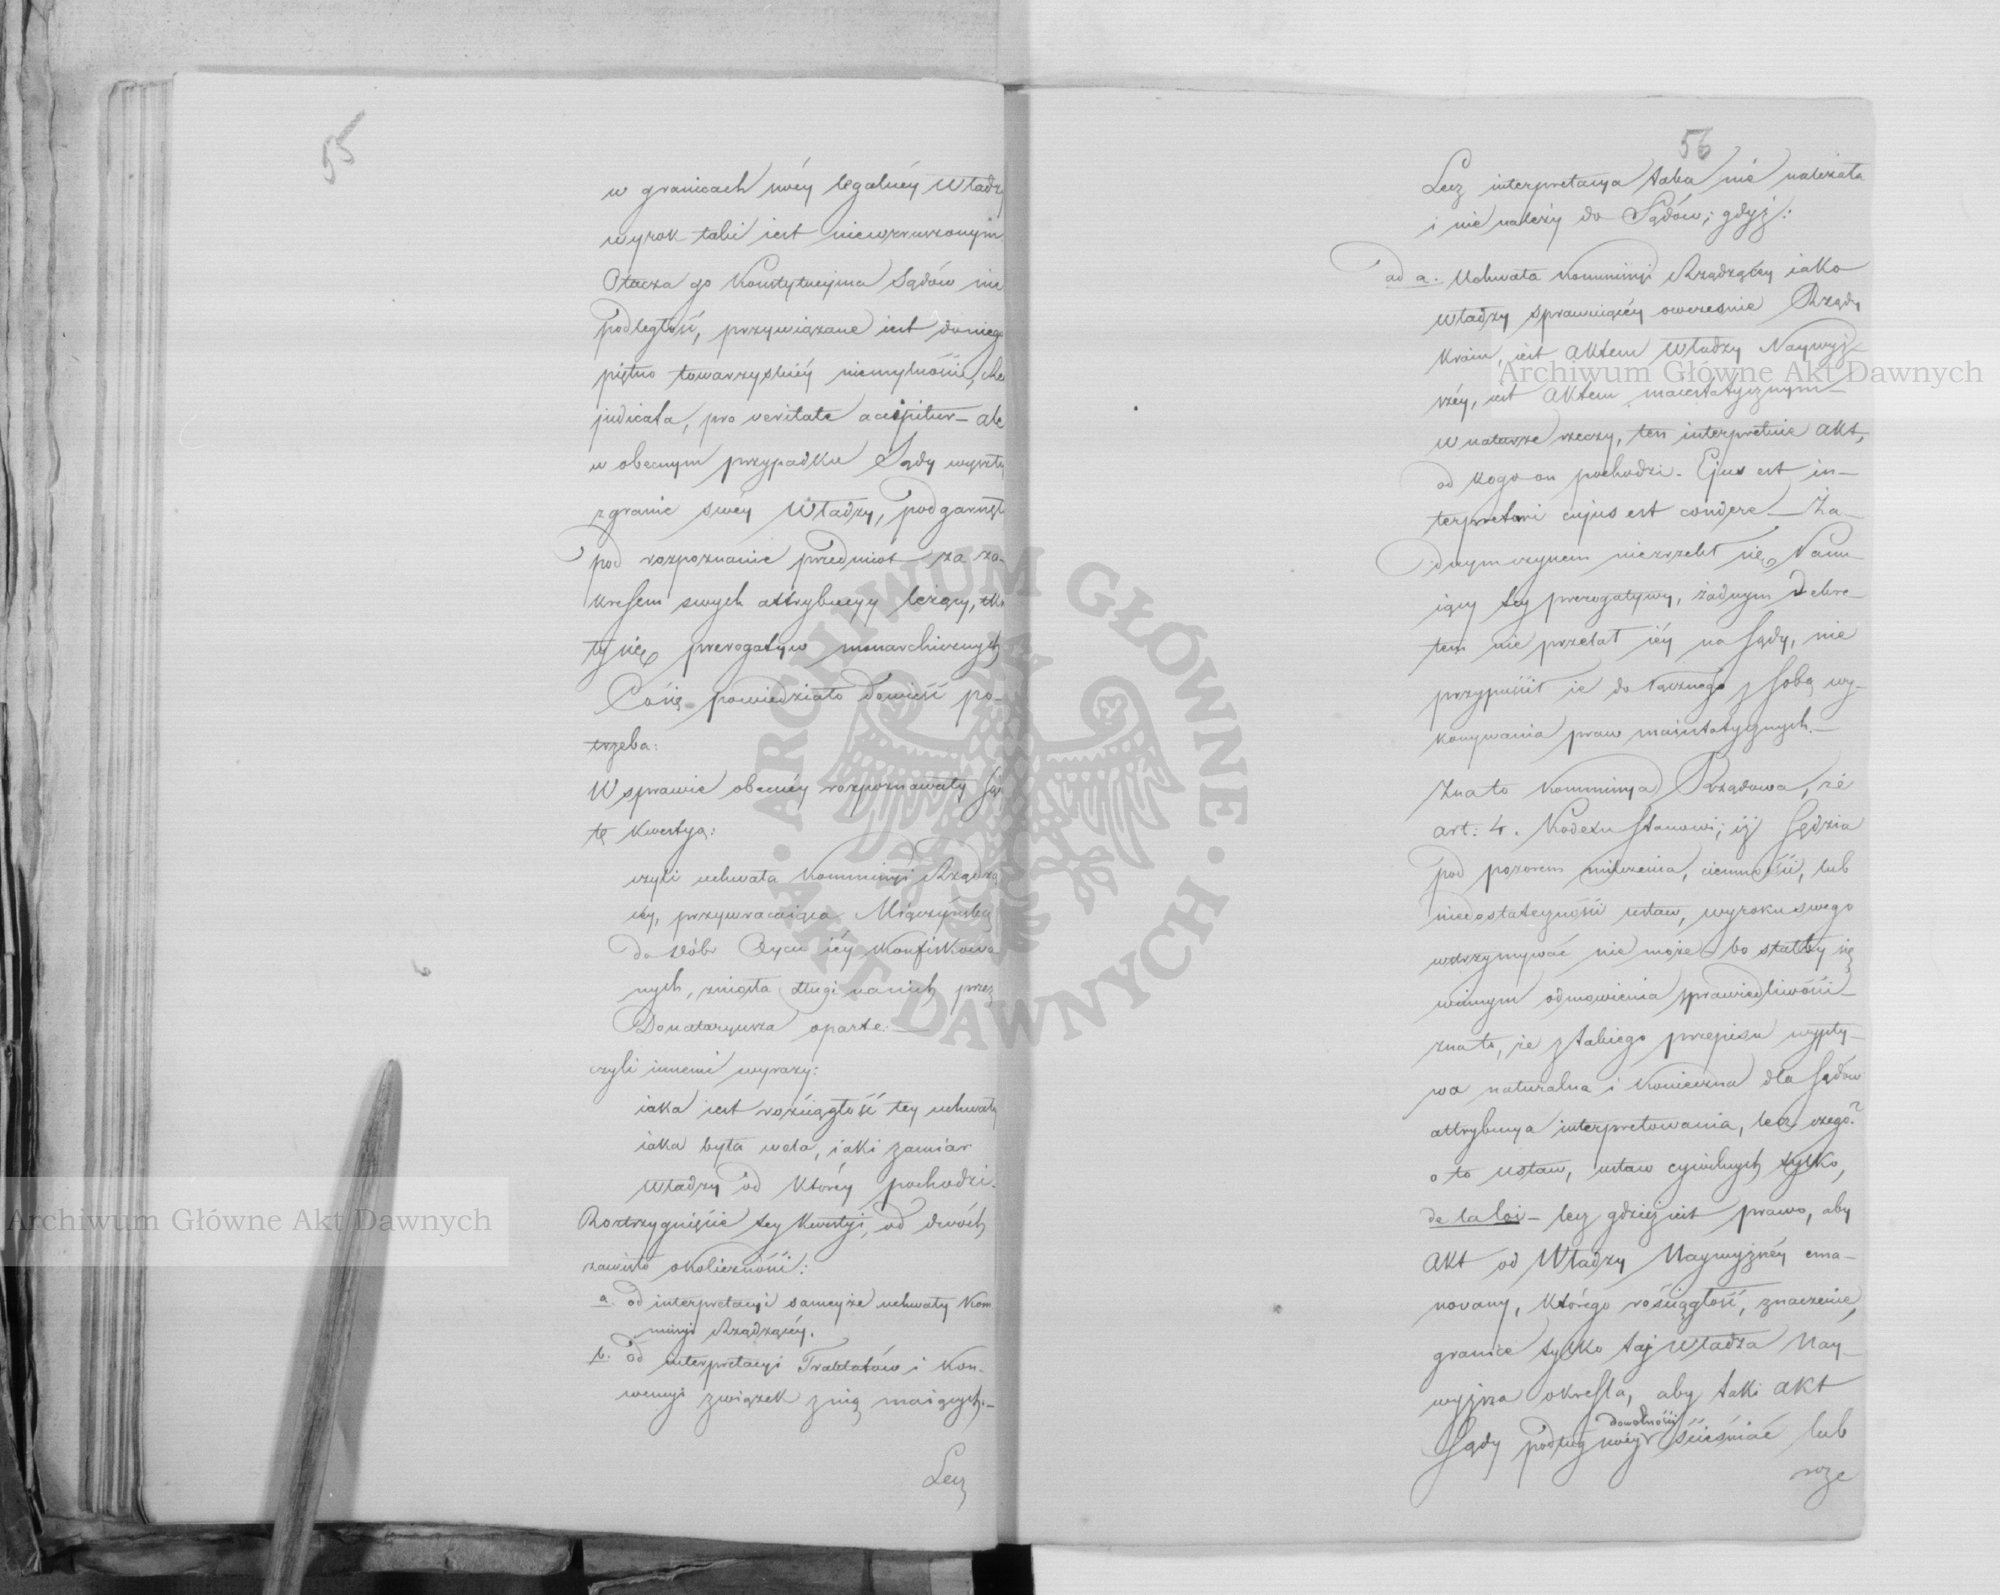 55
w granicach swéy legalnéy Władzy
wyrok taki iest niewzruszonym.
Otacza go Konstytucyjna Sądów nie
podległość, przywiązane iest do niego
piętno towarzyskiéy niemylności, res
judicata, pro veritate accipitur – ale
w obecnym przypadku Sądy wyszły
z granic swéy Władzy, podgarnęły
pod rozpoznanie przedmiot za za-
kresem swych attrybucyy leżący, tknę
ły się prerogatyw monarchicznych
Co się powiedziało dowieść po-
trzeba:
W sprawie obecnéy rozpoznawały Sądy
tę kwestyą:
czyli uchwała Kommissyi Rządzą
céy, przywracaiąca Mięczyńską
do dóbr Oycu iéy konfiskowa
nych, zniosła długi na nich przez
Donataryusza oparte:
czyli innemi wyrazy:
iaka iest rozciągłość tey uchwały
iaka była wola, iaki zamiar
Władzy od któréy pochodzi.
Rozstrzygnięcie tey kwestyi, od dwóch
zawisło okoliczności:
a. od interpretacyi samey że uchwały Kom
missyi Rządzącéy.
b. od interpretacyi Traktatów i Kon-
wencyi związek z nią maiących. –
Lecz
56
Lecz interpretacya taka nie należała
i nie należy do Sądów; gdyż:
ad a. Uchwała Kommissyi Rządzącéy iako
Władzy sprawuiącéy owcześnie Rządy
Kraiu, iest Aktem Władzy Naywyż-
széy, iest Aktem maiestatycznym –
w naturze rzeczy, ten interpretuie Akt,
od kogo on pochodzi. Ejus est in-
terpretari cujus est condere – Ża-
dnym czynem nie zrzekł się Panu-
iący tey prerogatywy, żadnym Dekre-
tem nie przelał iéy na Sądy, nie
przypuścił ie do łącznego z Sobą wy-
konywania praw maiestatycznych. –
Zna to Kommissya Rządowa, że
art: 4. Kodexu stanowi; iż Sędzia
pod pozorem milczenia, ciemności, lub
niedostateczności ustaw, wyroku swego
wstrzymywać nie może – bo stałby się
winnym odmowienia sprawiedliwości –
zna to, że z takiego przepisu wypły-
wa naturalna i konieczna dla Sądów
attrybucya interpretowania, lecz czego?
o to ustaw, ustaw cywilnych tylko,
de la loi – lecz gdzież iest prawo, aby
Akt od Władzy Naywyższéy ema-
nowany, którego rościągłość, znaczenie,
granice tylko taż Władza Nay-
wyższa określa, aby taki Akt
Sądy podług swéy dowolności ścieśniać lub
roze
Archiwum Główne Akt Dawnych
Archiwum Główne Akt Dawnych
ARCHIWUM GŁÓWNE · AKT DAWNYCH ·